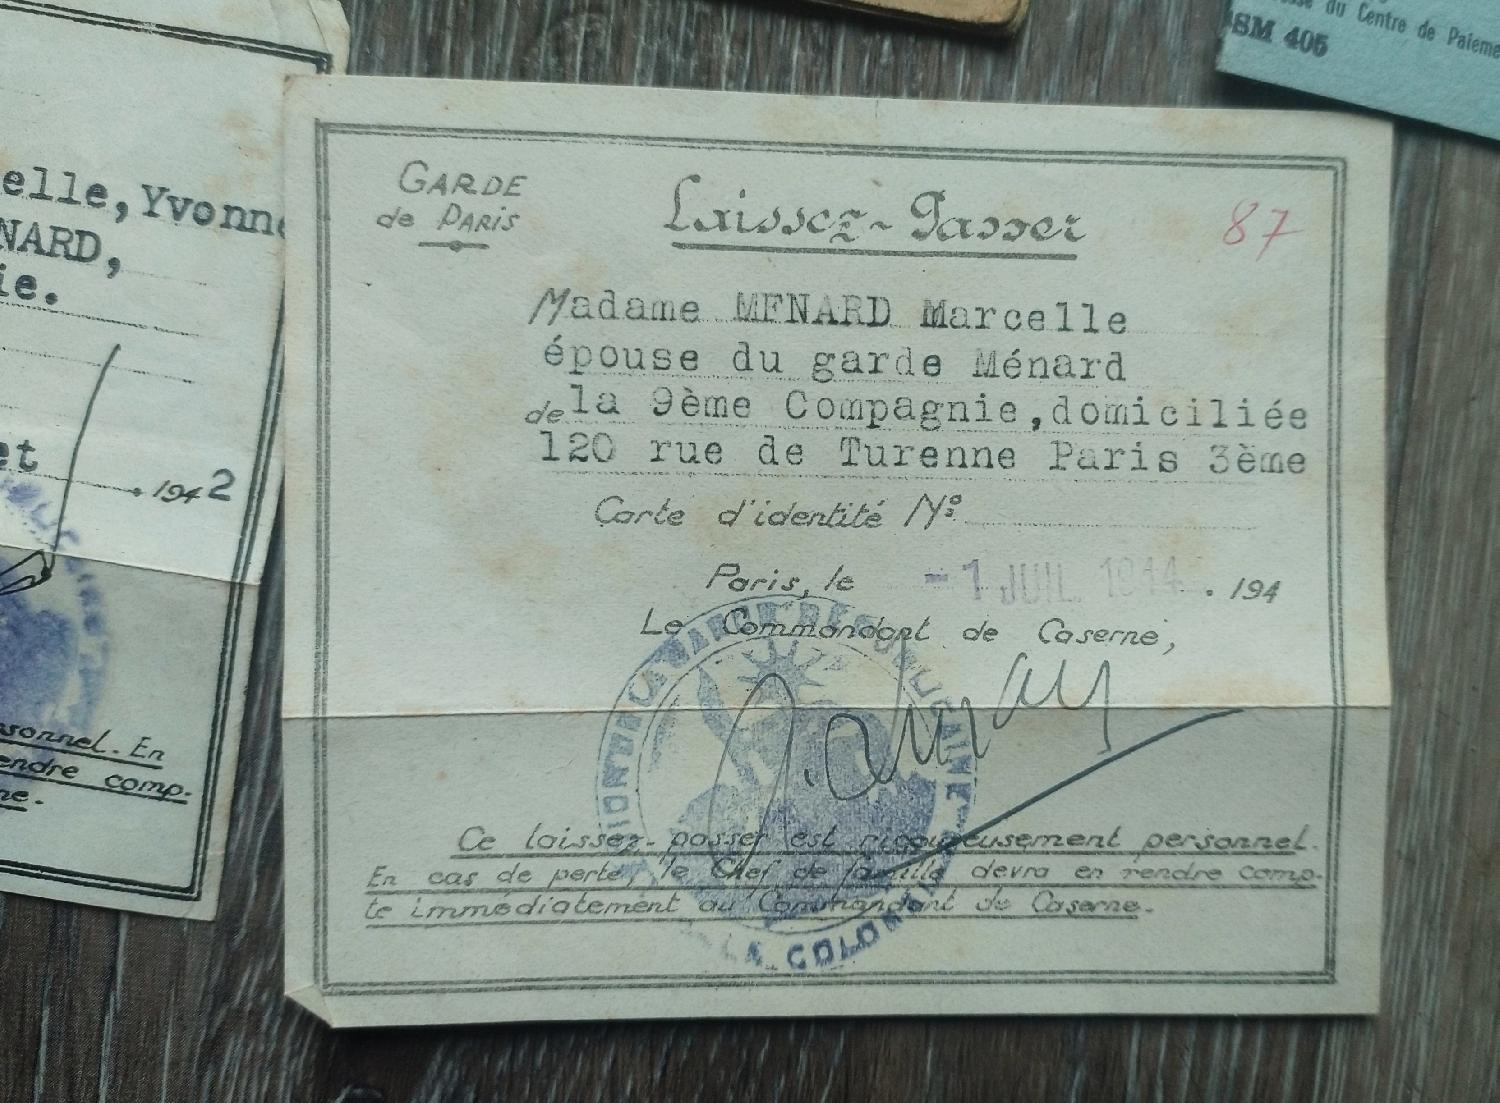 elle, Yvonne
NARD,
ie.
et
. 194 2
sonnel. En
endre comp-
ne.
du Centre de Paieme
SM 405
GARDE
de PARIS
Laissez-Passer
87
Madame MENARD Marcelle
épouse du garde Ménard
de la 9ème Compagnie, domiciliée
120 rue de Turenne Paris 3ème
Carte d'identité No
Paris, le - 1 JUIL. 1944 . 194
Le Commandant de Caserne,
Ce laissez-passer est rigoureusement personnel.
En cas de perte, le Chef de famille devra en rendre comp-
te immédiatement au Commandant de Caserne.